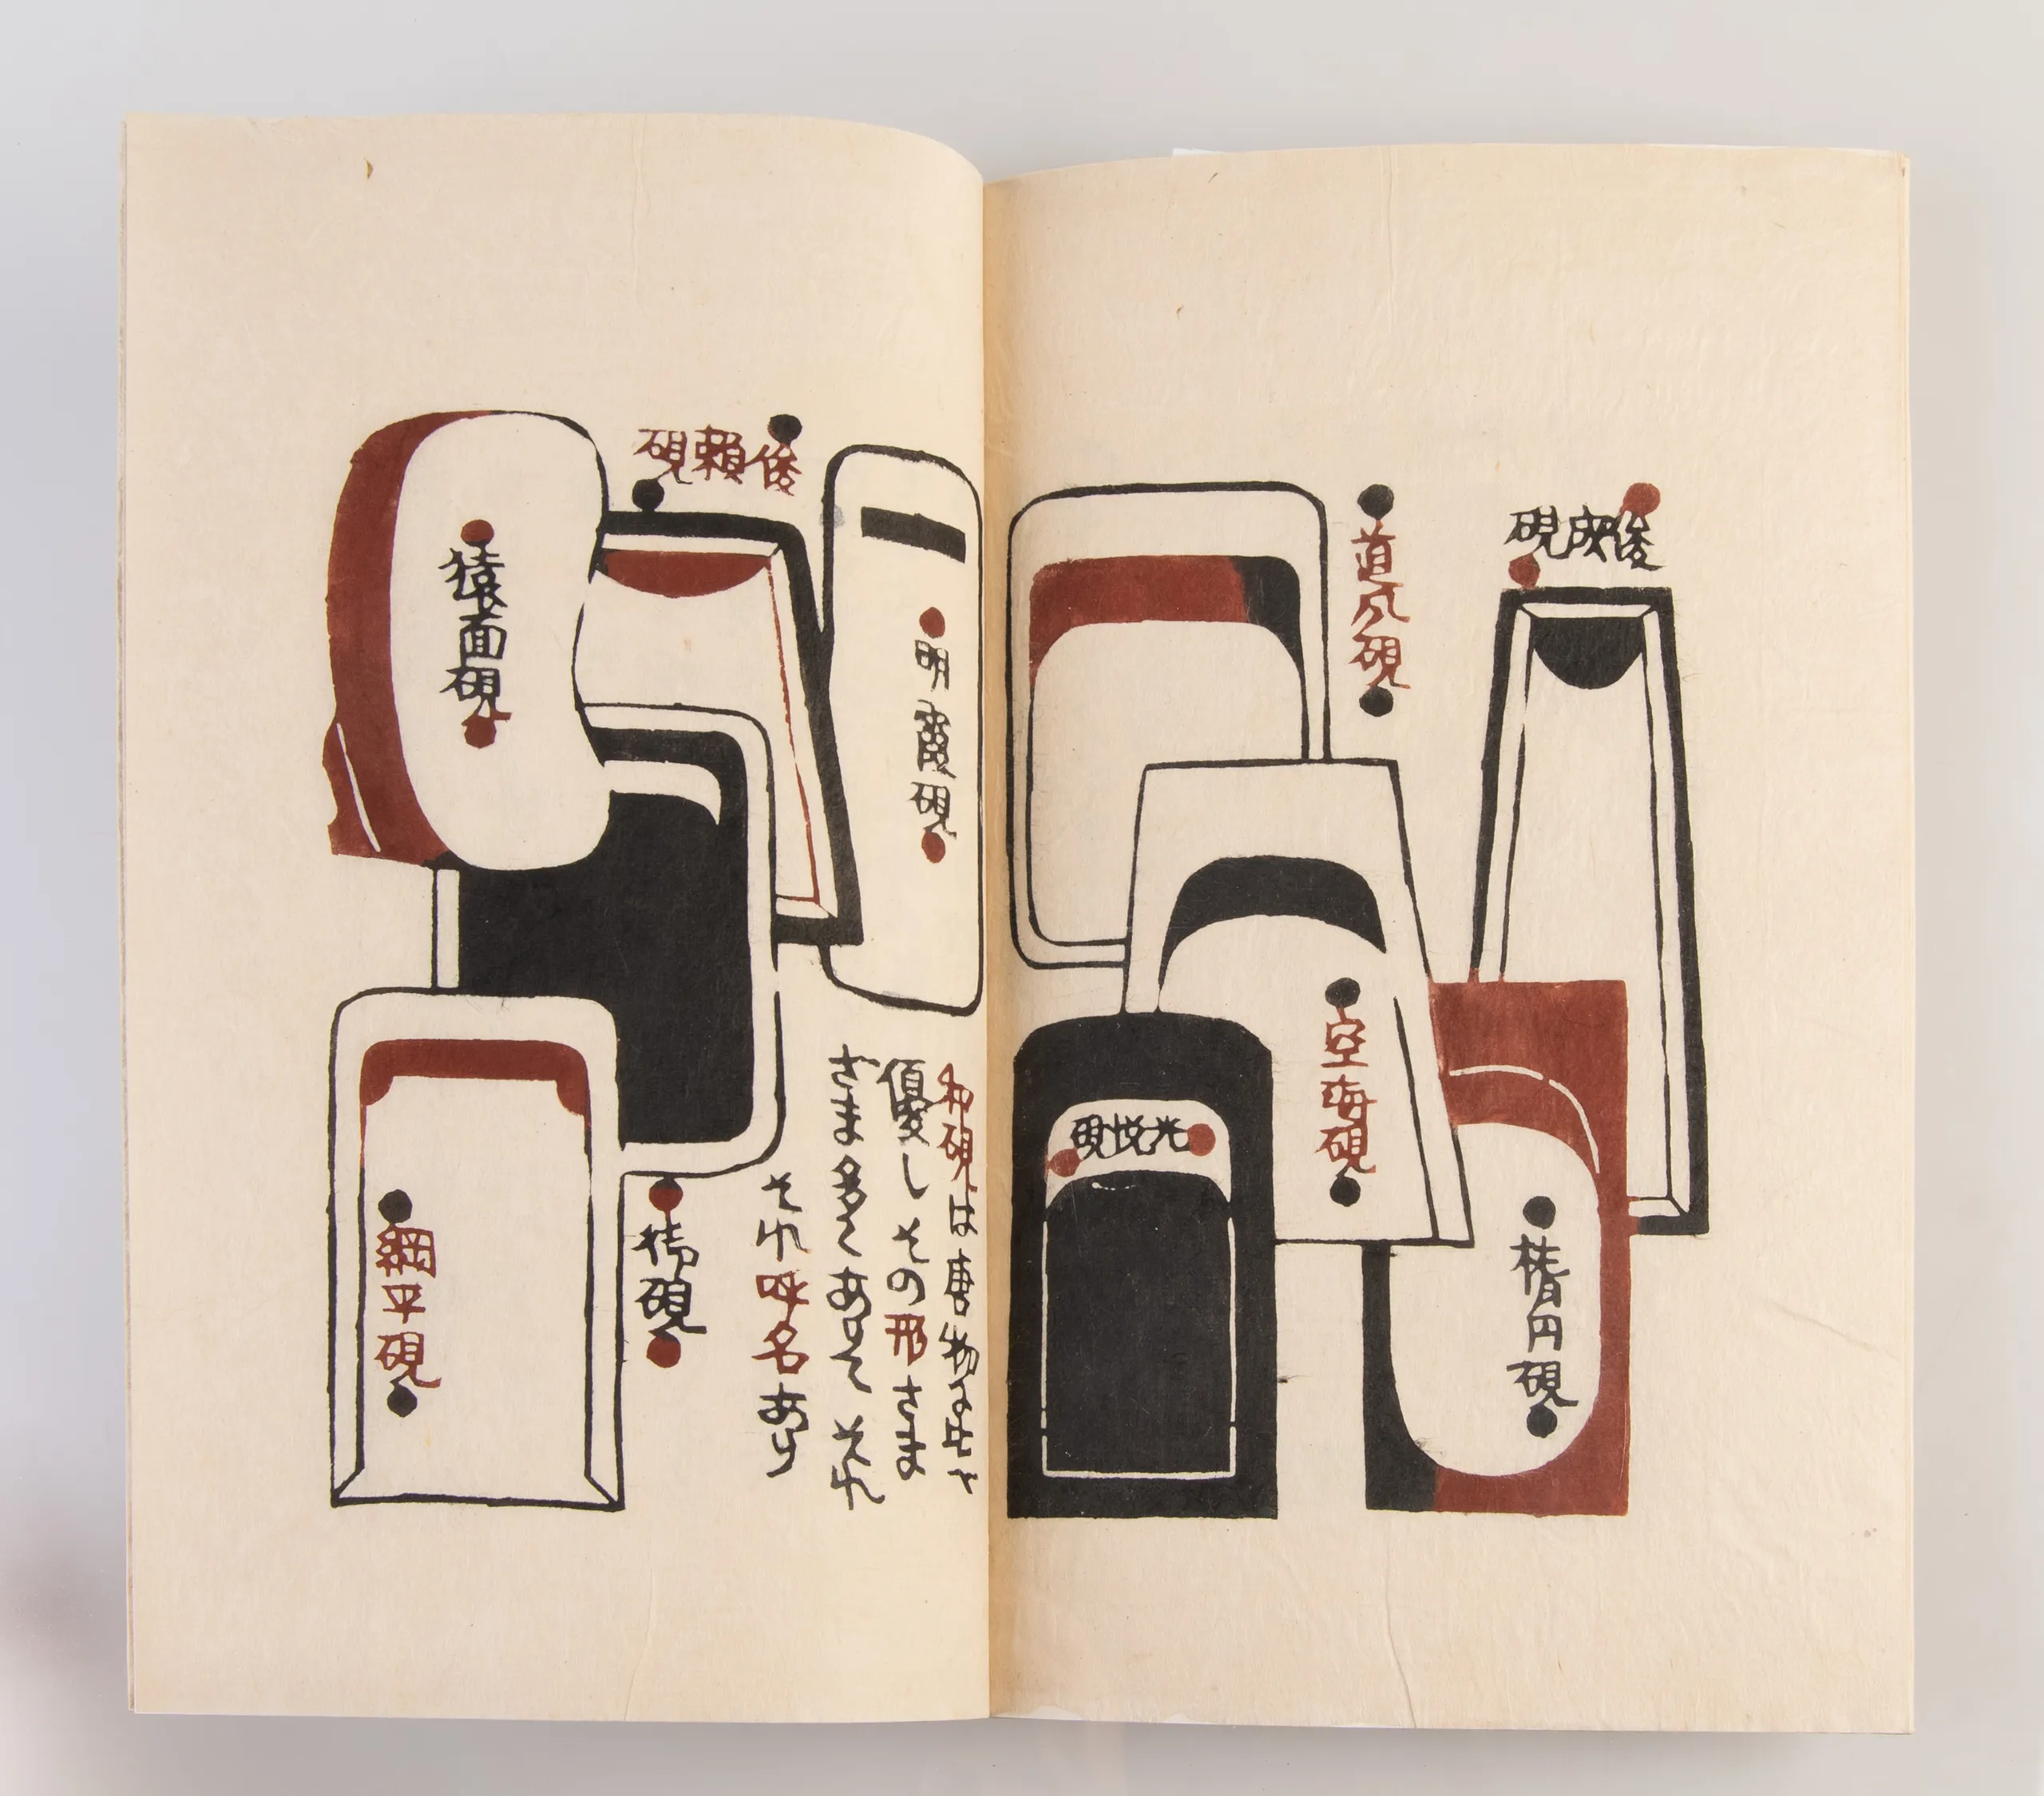 俊成硯
道風硯
楕円硯
空海硯
光悦硯
明霞硯
俊頼硯
和硯は唐物に比
優しその形さま
ざま多くありてそれ
それ呼名あり
猿面硯
硯
綱平硯